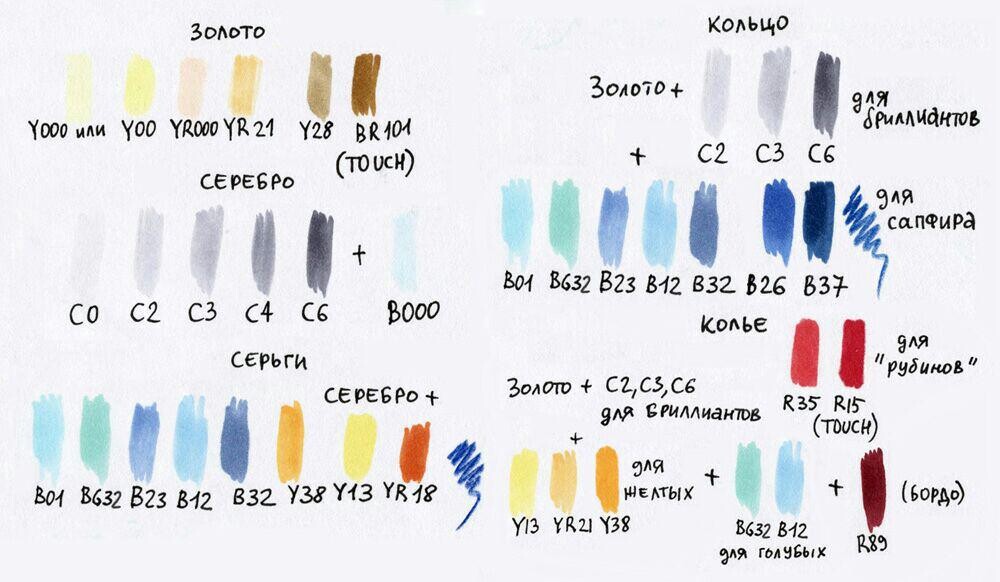 Золото
Y000 или Y00 YR000 YR21 Y28 BR101
(TOUCH)
Серебро
C0 C2 C3 C4 C6 + B000
Серьги
Серебро +
B01 BG32 B23 B12 B32 Y38 Y13 YR18
Кольцо
Золото +
для
бриллиантов
+ C2 C3 C6
для
сапфира
B01 BG32 B23 B12 B32 B26 B37
Колье
для
"рубинов"
R35 R15
(TOUCH)
Золото + C2, C3, C6
для бриллиантов
+
для
желтых
+ + (бордо)
Y13 YR21 Y38 BG32 B12 R89
для голубых